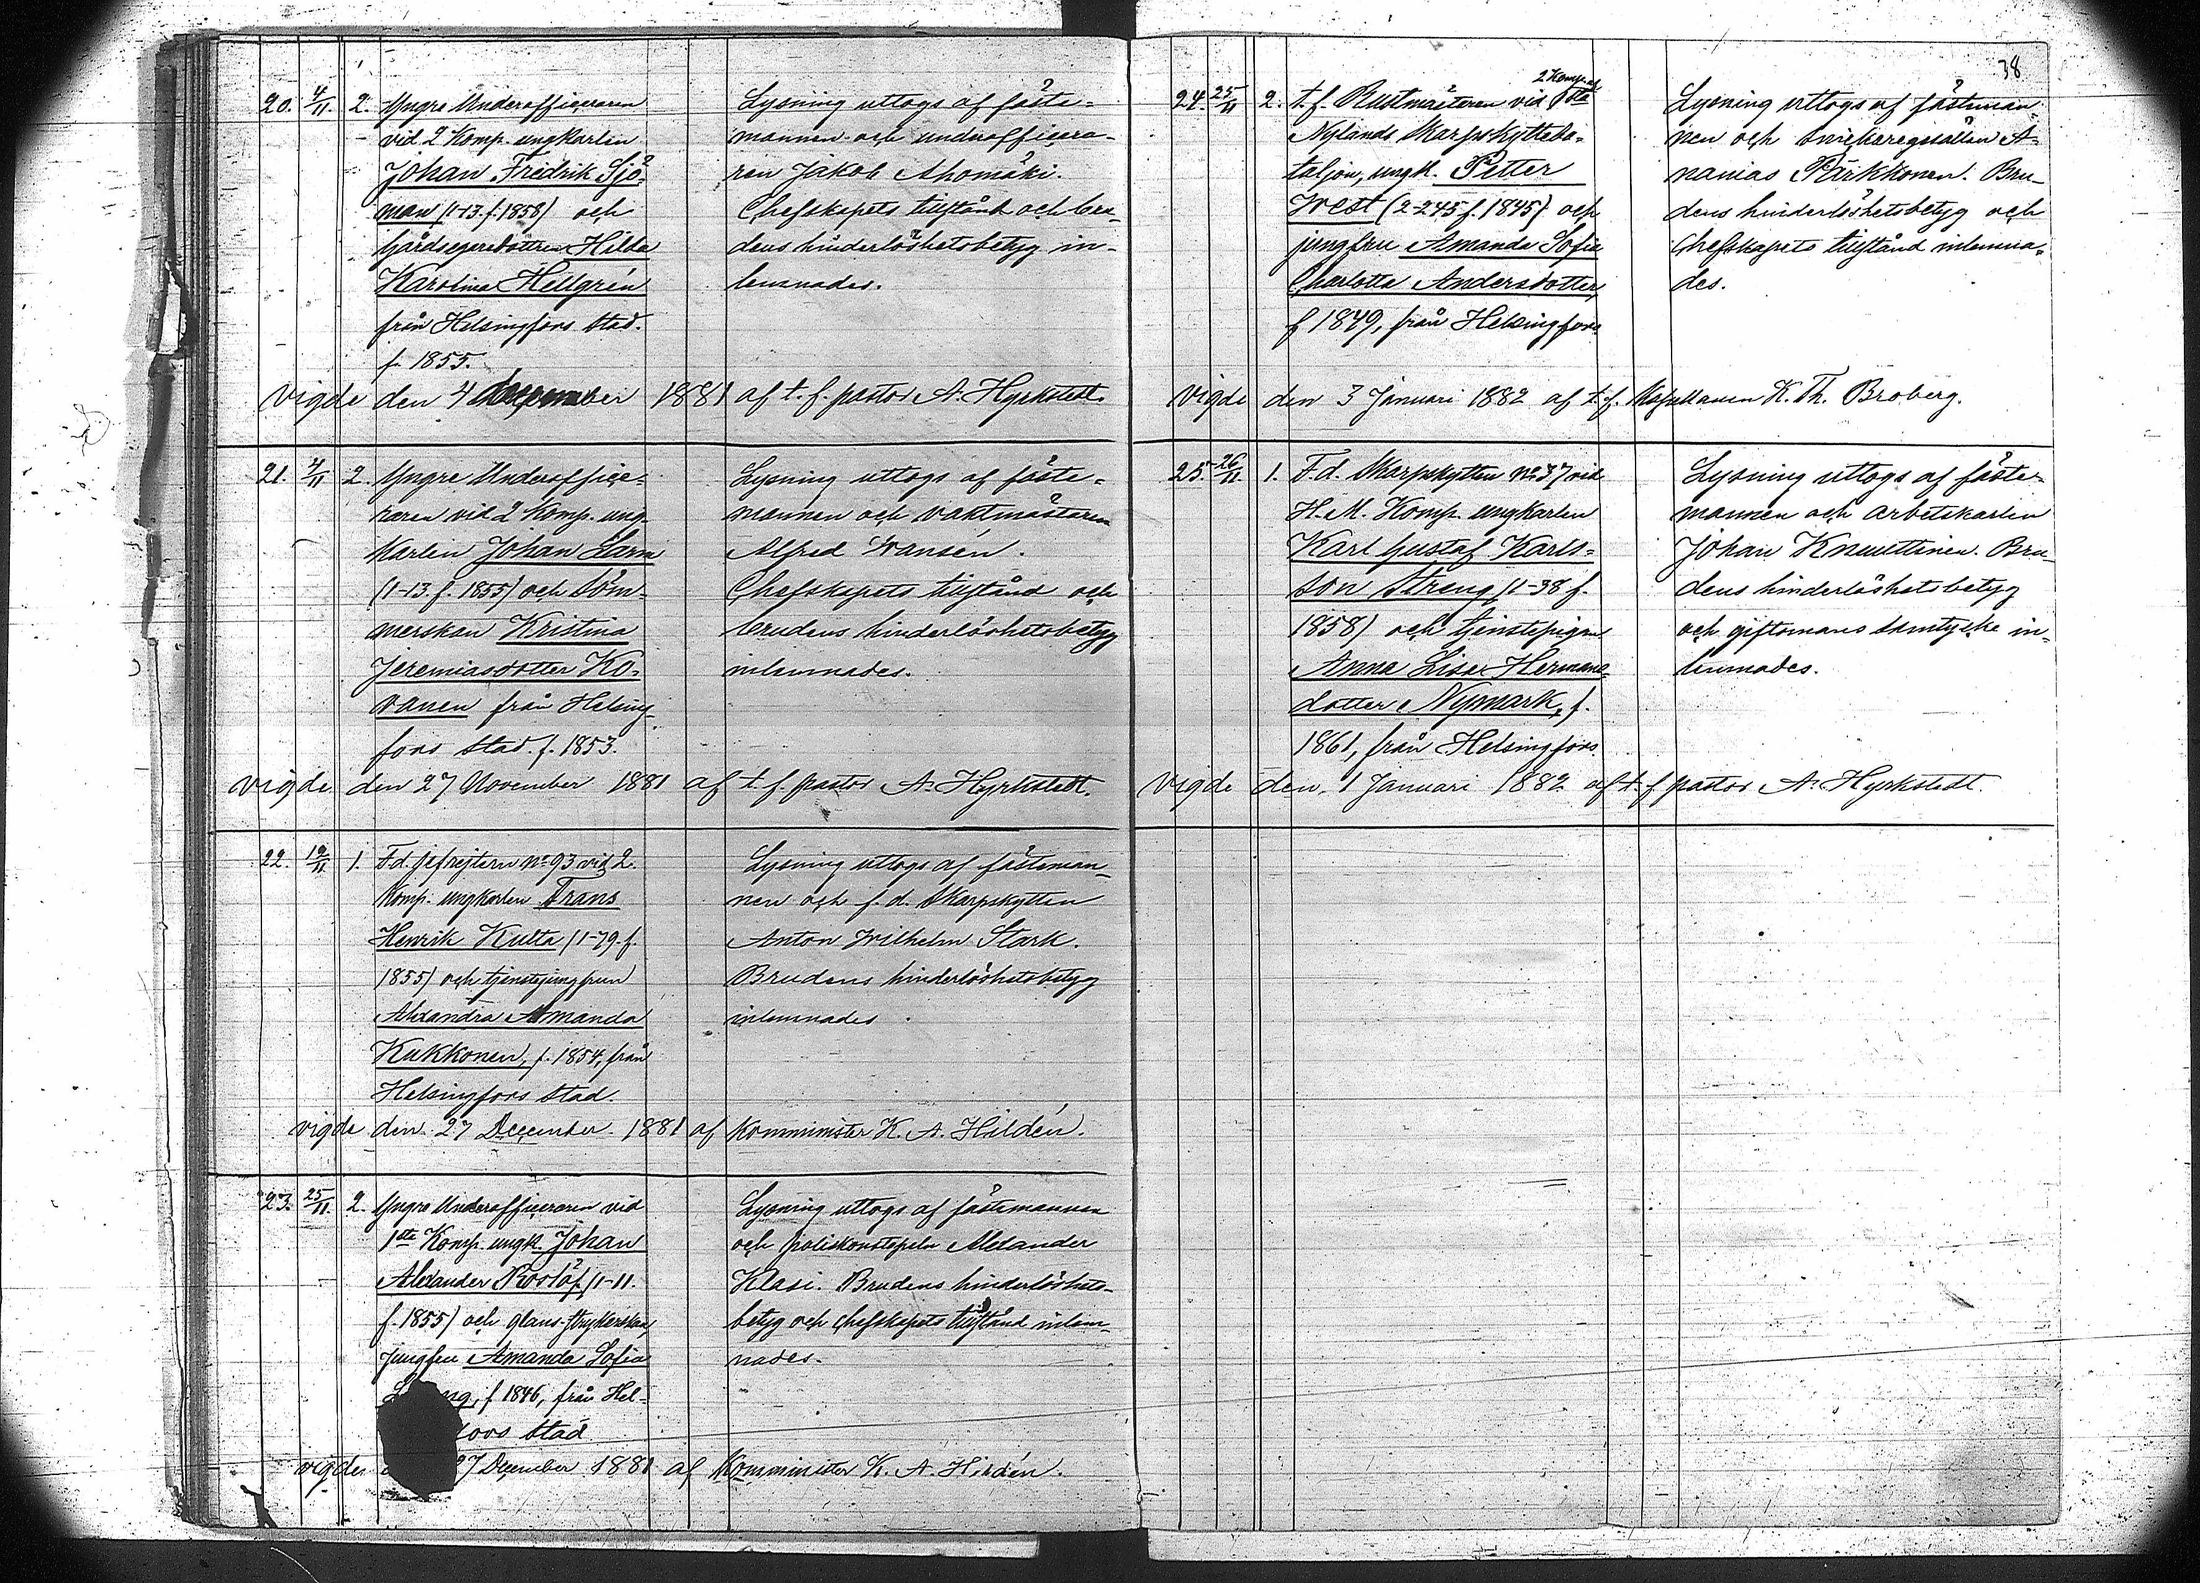 20. 4/11. 2. Yngre Underofficeraren
vid 2 Komp. ungkarlen
Johan Fredrik Sjö-
man (1-13. f. 1858) och
Gårdsegaredottren Hilda
Karolina Hellgrén
från Helsingfors stad.
f. 1855.
Lysning uttogs af fäste-
mannen och underofficera-
ren Jakob Ahomäki.
Chefskapets tillstånd och bru-
dens hinderlöshetsbetyg in-
lemnades.
Vigde den 4 december 1881 af t. f. pastor A. Hyrkstedt.
21. 4/11 2. Yngre Underoffice-
raren vid 2 Komp. ung-
karlen Johan Larm
(1-13. f. 1855) och söm-
merskan Kristina
Jeremiasdotter Ko-
vanen från Helsing-
fors stad. f. 1853.
Lysning uttogs af fäste-
mannen och vaktmästaren
Alfred Wansén.
Chefskapets tillstånd och
brudens hinderlöshetsbetyg
inlemnades.
Vigde den 27 November 1881 af t. f. pastor A. Hyrkstedt.
22. 19/11 1. F.d. jefrejtern No 93 vid 2.
Komp. ungkarlen Frans
Henrik Kulta (1-79. f.
1855) och tjenstejungfrun
Alexandra Amanda
Kukkonen, f. 1854, från
Helsingfors stad.
Lysning uttogs af fästeman-
nen och f. d. Skarpskytten
Anton Wilhelm Stark.
Brudens hinderlöshetsbetyg
inlemnades
Vigde den 27 December 1881 af Komminister K. A. Hildén.
23. 25/11. 2. Yngre Underofficeraren vid
1sta Komp. ungk. Johan
Alexander Roslöf (1-11.
f. 1855) och glans-strykerskan,
jungfru Amanda Sofia
f. 1846, från Hel-
fors stad
Lysning uttogs af fästemannen
och poliskonstapeln Alexander
Klasi. Brudens hinderlöshets-
betyg och chefskapets tillstånd inlem-
nades.
vigde 27 December 1881 af Komminister K. A. Hildén.
38
24. 25/11 2. t. f. Rustmästeren vid 2 Komp. af
Nylands Skarpskytteba-
taljon, ungk. Petter
West (2-245 f. 1845) och
jungfru Amanda Sofia
Charlotta Andersdotter,
f 1849, från Helsingfors
Lysning uttogs af fästeman-
nen och A-
nanias Pärkkönen. Bru-
dens hinderlöshetsbetyg och
Chefskapets tillstånd inlemna-
des.
Vigde den 3 Januari 1882 af t. f. Kapellanen K. Th. Broberg.
25. 26/11 1. F. d. Skarpskytten No 37 vid
H. M. Komp. ungkarlen
Karl Gustaf Karls-
son Streng (1-38 f.
1858) och tjenstepigan
Anna Lisa Hermans-
dotter Nymark, f.
1861, från Helsingfors.
Lysning uttogs af fäste-
mannen och arbetskarlen
Johan Knuuttinen. Bru-
dens hinderlöshetsbetyg
och giftomans samtycke in-
lemnades.
Vigde den 1 Januari 1882 af t. f pastor A. Hyrkstedt.